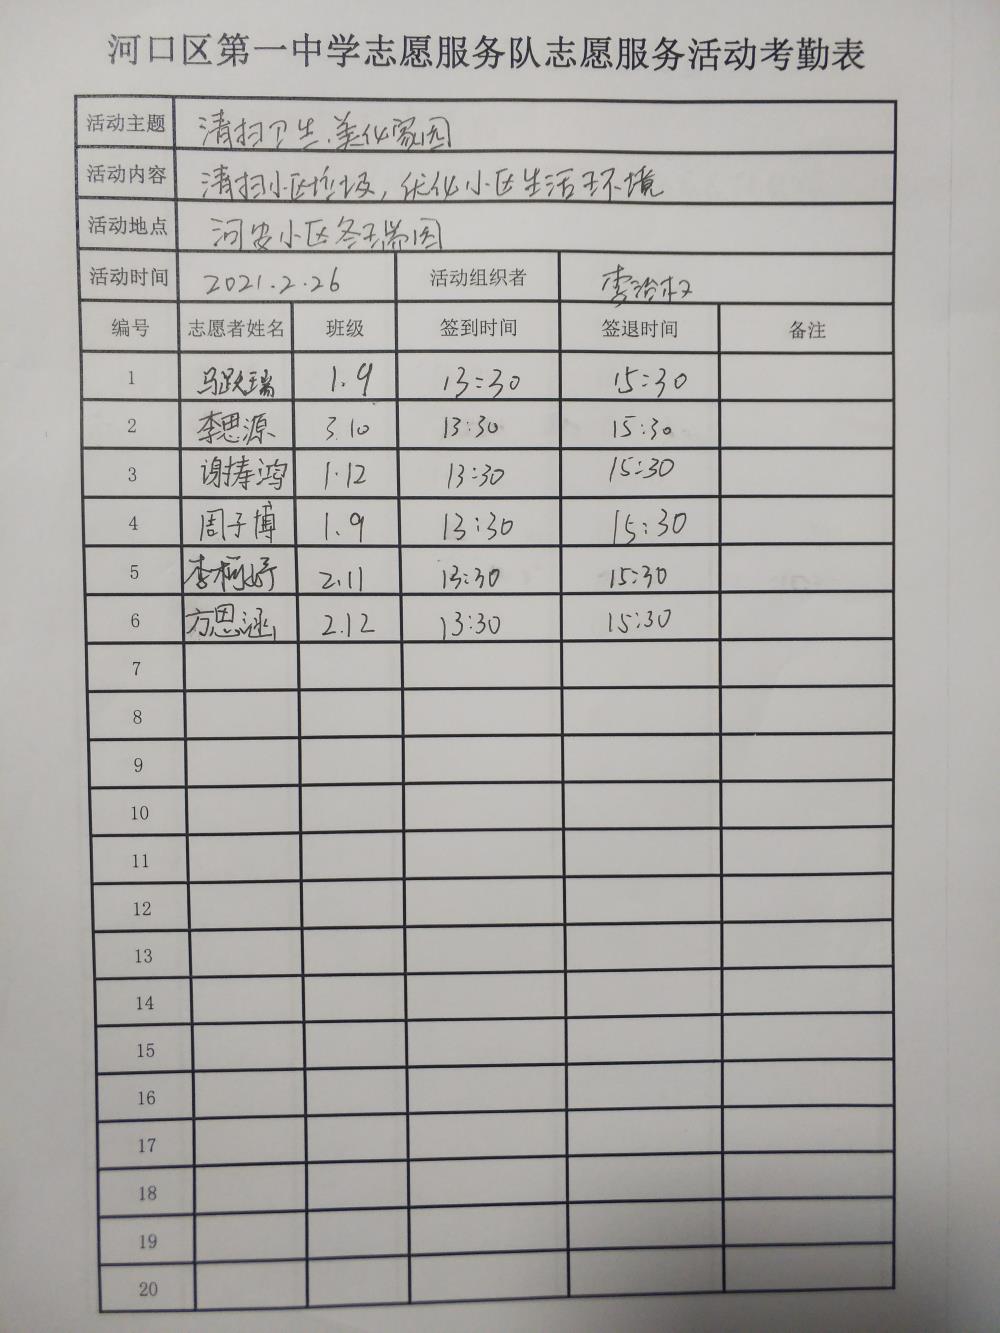 河口区第一中学志愿服务队志愿服务活动考勤表
活动主题 清扫卫生,美化家园
活动内容 清扫小区垃圾,优化小区生活环境
活动地点 河安小区
活动时间 2021.2.26 活动组织者 李治
编号 志愿者姓名 班级 签到时间 签退时间 备注
1 马跃瑞 1.9 13:30 15:30
2 李思源 3.10 13:30 15:30
3 谢捧鸿 1.12 13:30 15:30
4 周子博 1.9 13:30 15:30
5 李柯妤 2.11 13:30 15:30
6 方恩涵 2.12 13:30 15:30
7
8
9
10
11
12
13
14
15
16
17
18
19
20